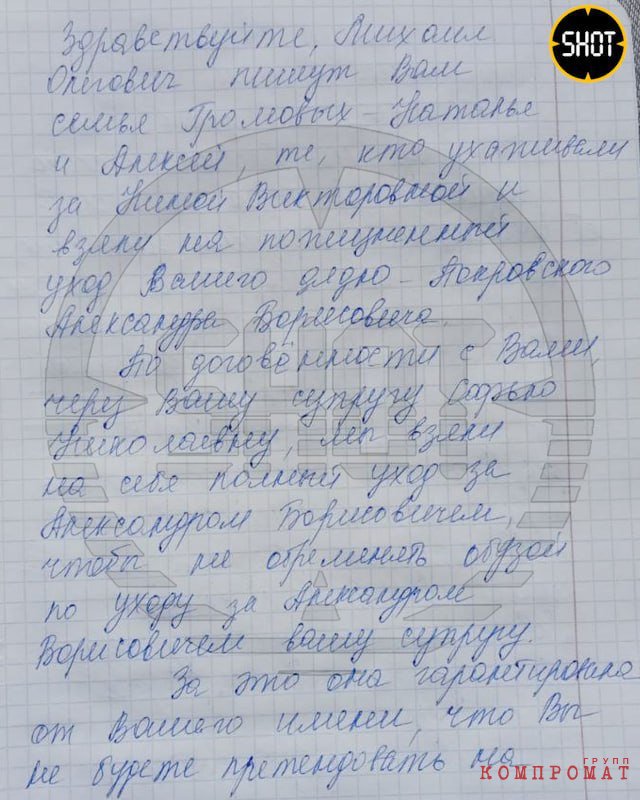 SHOT
Здравствуйте, Михаил
Олегович пишут Вам
семья Громовых - Наталья
и Алексей, те, кто ухаживали
за Ниной Викторовной и
взяли на пожизненный
уход Вашего дядю - Покровского
Александра Борисовича.
По договённости с Вами,
через Вашу супругу Софью
Николаевну, мы взяли
на себя полный уход за
Александром Борисовичем,
чтобы не обременять обузой
по уходу за Александром
Борисовичем вашу супругу.
За это она гарантировала
от Вашего имени, что Вы
не будете претендовать на
SHOT
ГРУПП
КОМПРОМАТ